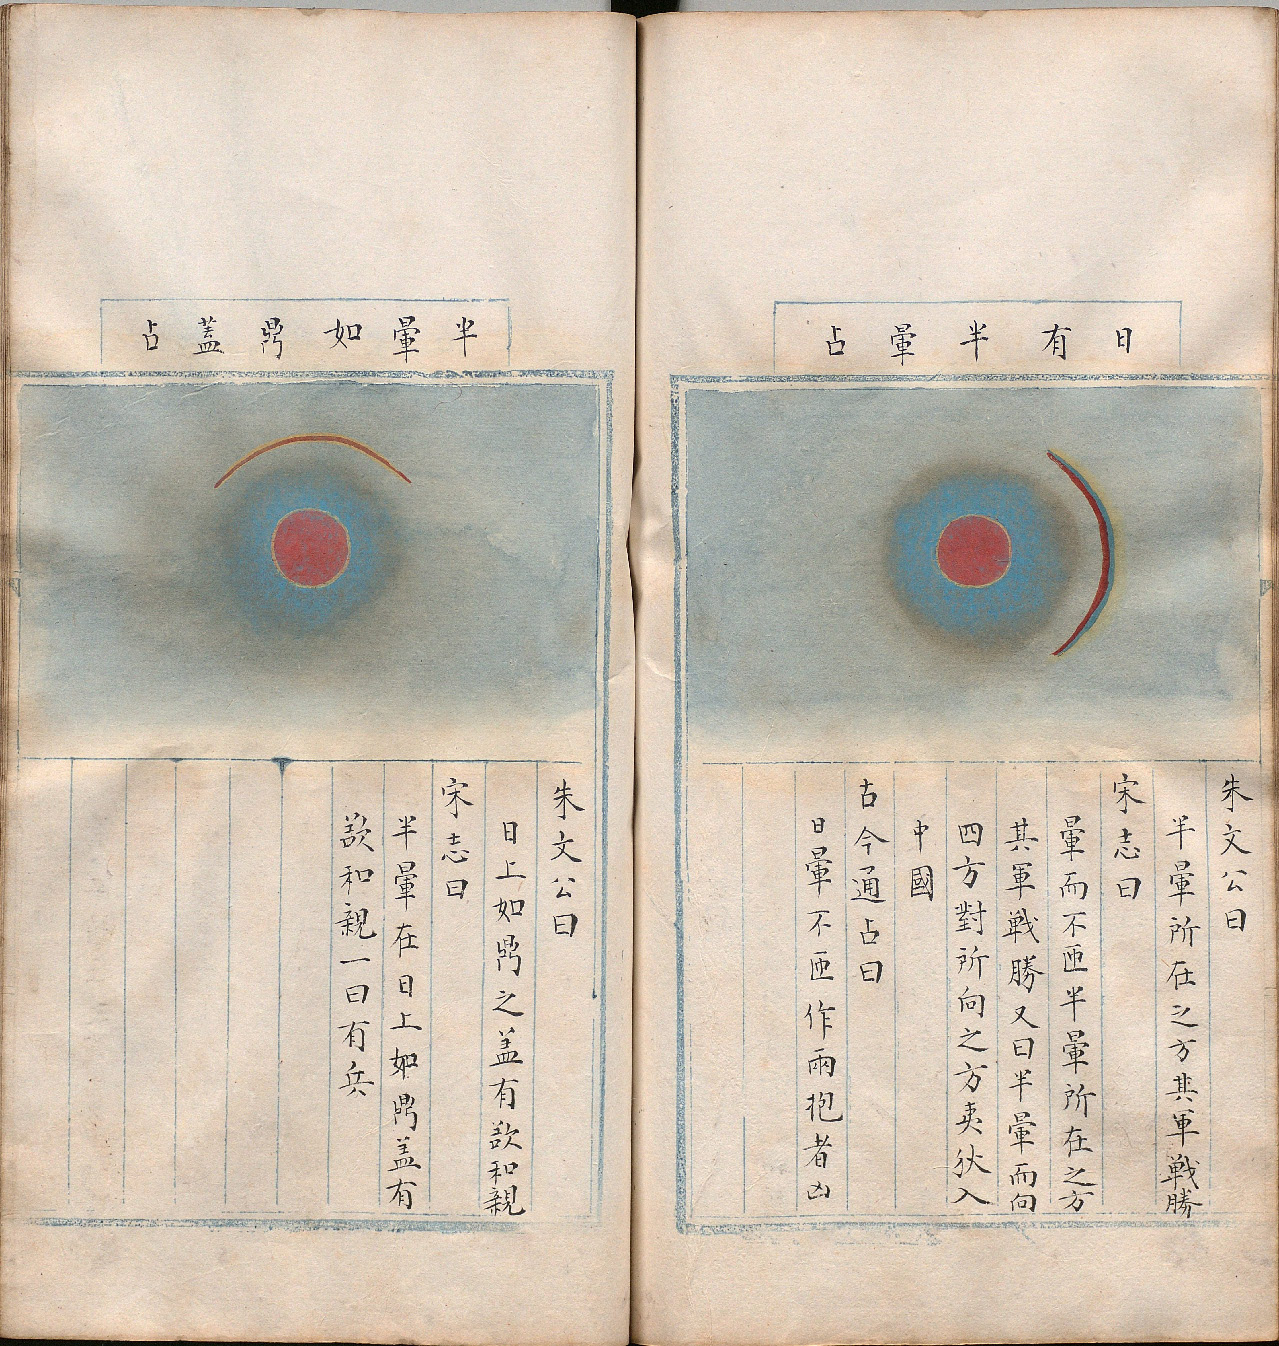 日有半暈占
朱文公曰
半暈所在之方其軍戦勝
宋志曰
暈而不匝半暈所在之方
其軍戦勝又曰半暈而向
四方對所向之方夷狄入
中國
古今通占曰
日暈不匝作兩抱者凶
半暈如鼎蓋占
朱文公曰
日上如鼎之盖有欲和親
宋志曰
半暈在日上如鼎盖有
欲和親一曰有兵